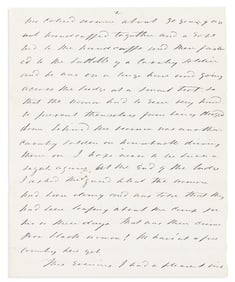 2.
two colored women about 30 going on
and handcuffed together and a rope
tied to the handcuffs and then fasten
ed to the saddle of a Cavalry Soldier
and he was on a large horse and going
across the bridge at a smart trot so
that the women had to run very hard
to prevent themselves from being dragged
down behind the women was another
cavalry soldier on horseback driving
them on I hope never to see such a
sight again. At the end of the bridge
I asked the guard what the women
had been doing and was told that they
had been loafing about the camp for
two or three days that was their crime
Poor black women! We haven't a free
country here yet.
This evening I had a pleasant